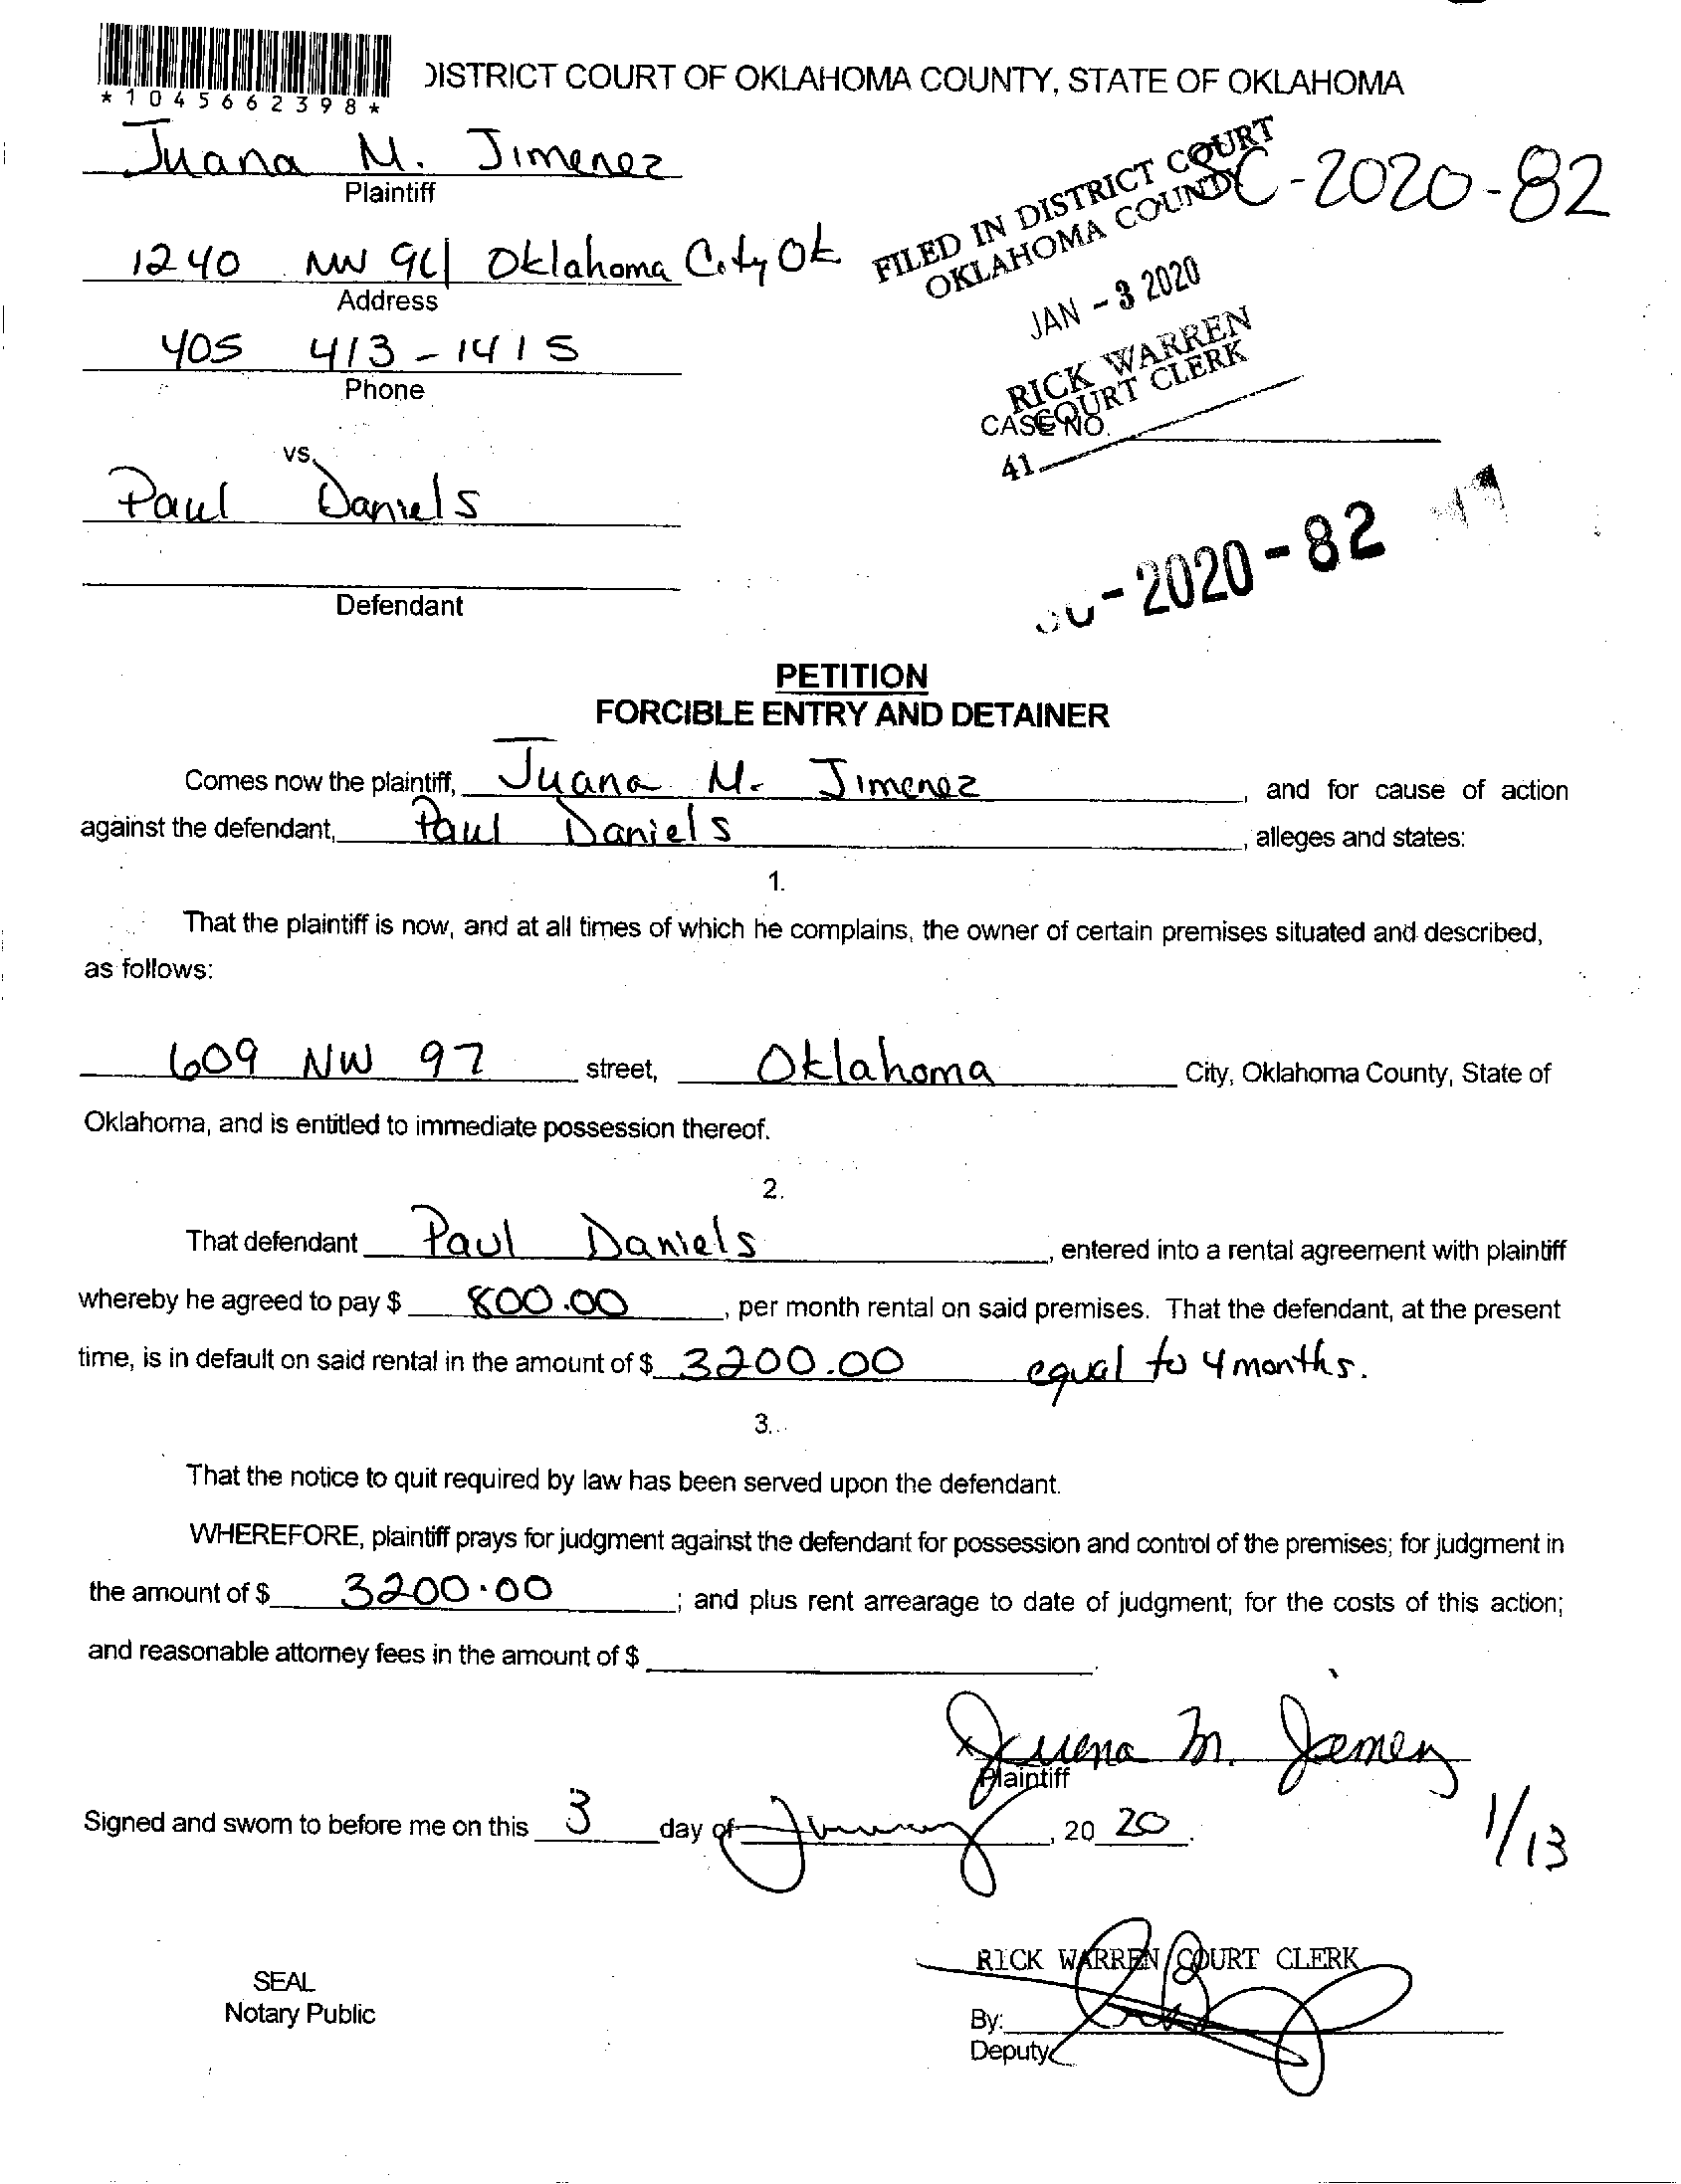 *1045662398*
DISTRICT COURT OF OKLAHOMA COUNTY, STATE OF OKLAHOMA
Juana M. Jimenez
Plaintiff
SC-2020-82
1240 NW 94 Oklahoma City Ok
Address
FILED IN DISTRICT COURT
OKLAHOMA COUNTY
JAN - 3 2020
RICK WARREN
COURT CLERK
41
405 413-1415
Phone
CASE NO.
vs.
Paul Daniels
Defendant
-2020-82
PETITION
FORCIBLE ENTRY AND DETAINER
Comes now the plaintiff, Juana M. Jimenez, and for cause of action
against the defendant, Paul Daniels, alleges and states:
1.
That the plaintiff is now, and at all times of which he complains, the owner of certain premises situated and described,
as follows:
609 NW 97 street, Oklahoma City, Oklahoma County, State of
Oklahoma, and is entitled to immediate possession thereof.
2.
That defendant Paul Daniels, entered into a rental agreement with plaintiff
whereby he agreed to pay $ 800.00, per month rental on said premises. That the defendant, at the present
time, is in default on said rental in the amount of $ 3200.00 equal to 4 months.
3.
That the notice to quit required by law has been served upon the defendant.
WHEREFORE, plaintiff prays for judgment against the defendant for possession and control of the premises; for judgment in
the amount of $ 3200.00; and plus rent arrearage to date of judgment; for the costs of this action;
and reasonable attorney fees in the amount of $
x Juana M. Jimenez
Plaintiff
Signed and sworn to before me on this 3 day of January, 20 20.
1/13
RICK WARREN COURT CLERK
SEAL
Notary Public
By:
Deputy